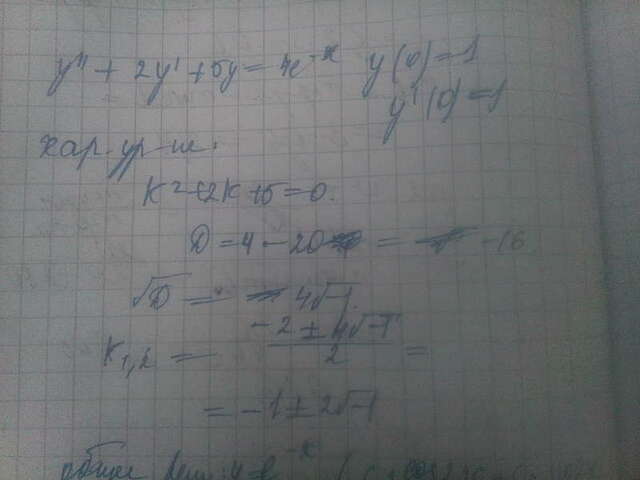 y'' + 2y' + 5y = 4e^-x y(0)=1
y'(0)=1
хар. ур-ие.
k²+2k+5=0.
D = 4 - 20 = -16
√D = 4√-1.
k1,2 = (-2 ± 4√-1)/2 =
= -1 ± 2√-1
общее